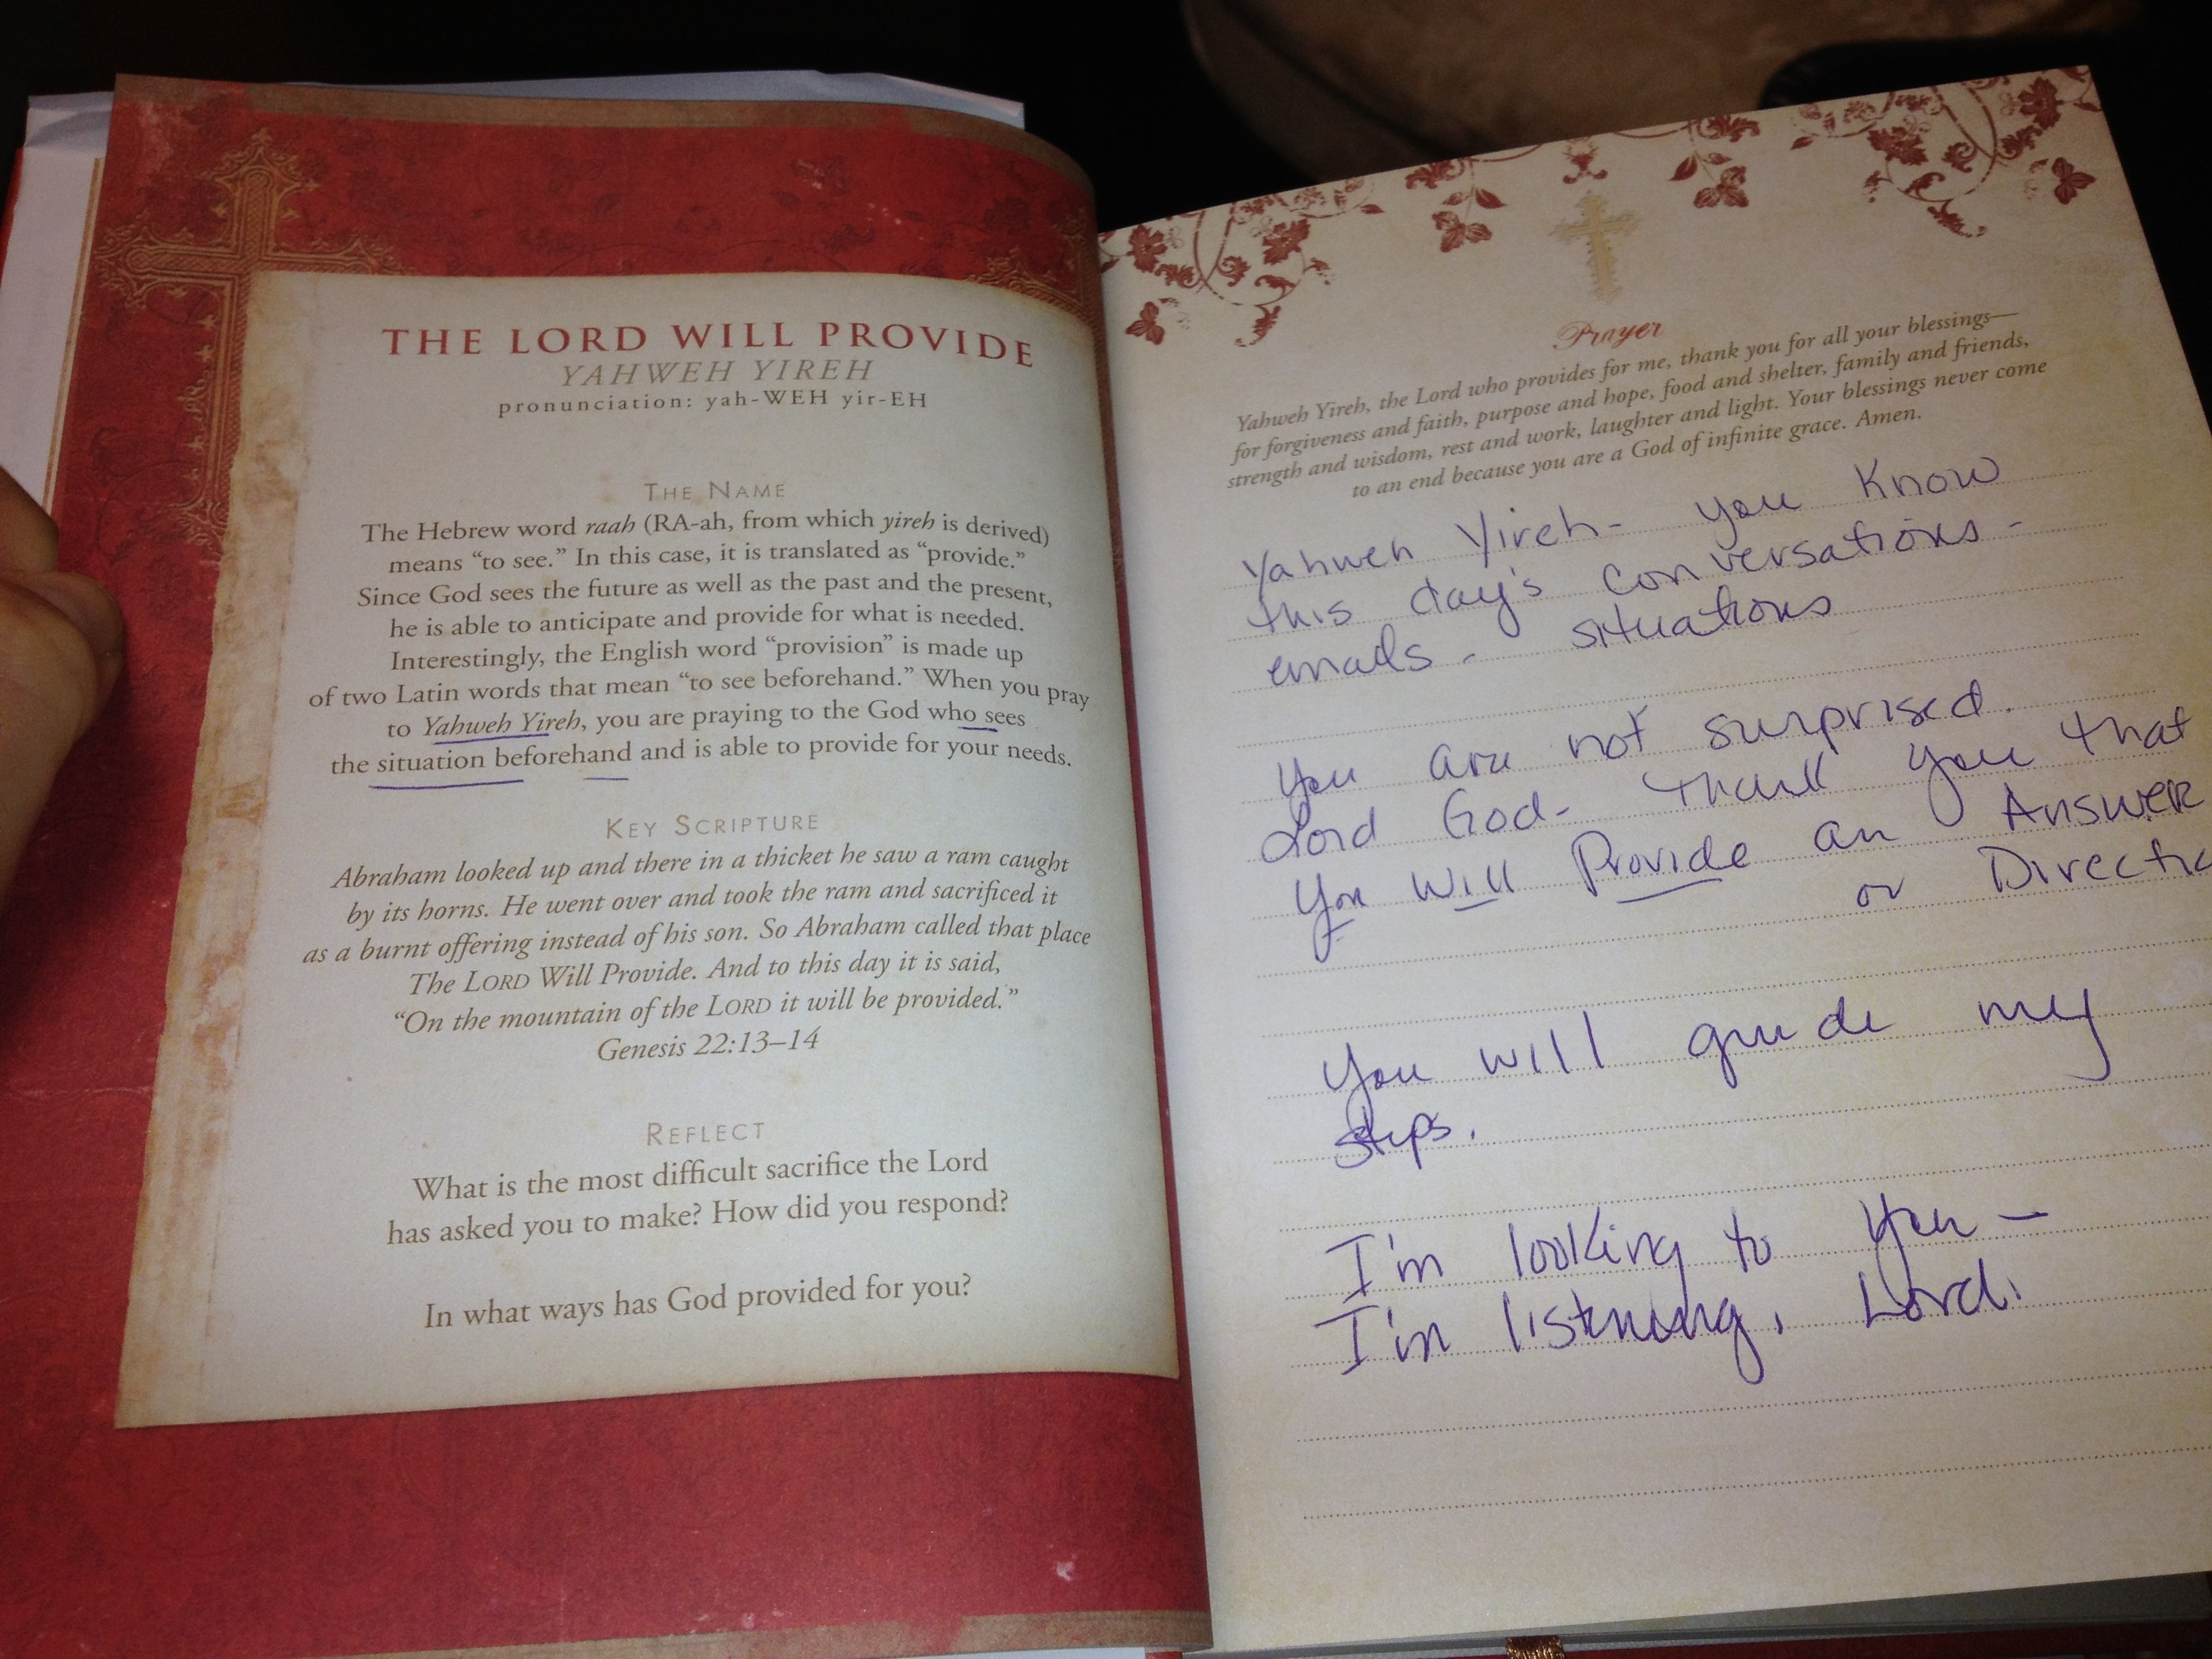 THE LORD WILL PROVIDE
YAHWEH YIREH
pronunciation: yah-WEH yir-EH
THE NAME
The Hebrew word raah (RA-ah, from which yireh is derived)
means “to see.” In this case, it is translated as “provide.”
Since God sees the future as well as the past and the present,
he is able to anticipate and provide for what is needed.
Interestingly, the English word “provision” is made up
of two Latin words that mean “to see beforehand.” When you pray
to Yahweh Yireh, you are praying to the God who sees
the situation beforehand and is able to provide for your needs.
KEY SCRIPTURE
Abraham looked up and there in a thicket he saw a ram caught
by its horns. He went over and took the ram and sacrificed it
as a burnt offering instead of his son. So Abraham called that place
The LORD Will Provide. And to this day it is said,
“On the mountain of the LORD it will be provided.”
Genesis 22:13–14
REFLECT
What is the most difficult sacrifice the Lord
has asked you to make? How did you respond?
In what ways has God provided for you?
Prayer
Yahweh Yireh, the Lord who provides for me, thank you for all your blessings—
for forgiveness and faith, purpose and hope, food and shelter, family and friends,
strength and wisdom, rest and work, laughter and light. Your blessings never come
to an end because you are a God of infinite grace. Amen.
Yahweh Yireh - you know
this day's conversations -
emails - situations
You are not surprised.
Lord God - thank you that
You will Provide an Answer
or Directio
You will guide my
steps.
I'm looking to You -
I'm listening, Lord.